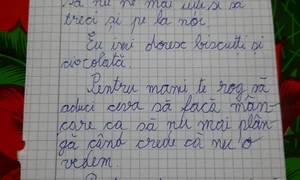 să nu ne mai uiți și să
treci și pe la noi.
Eu îmi doresc biscuiți și
ciocolată.
Pentru mami te rog să
aduci ceva să facă mân-
care ca să nu mai plân-
gă când crede că nu o
vedem.